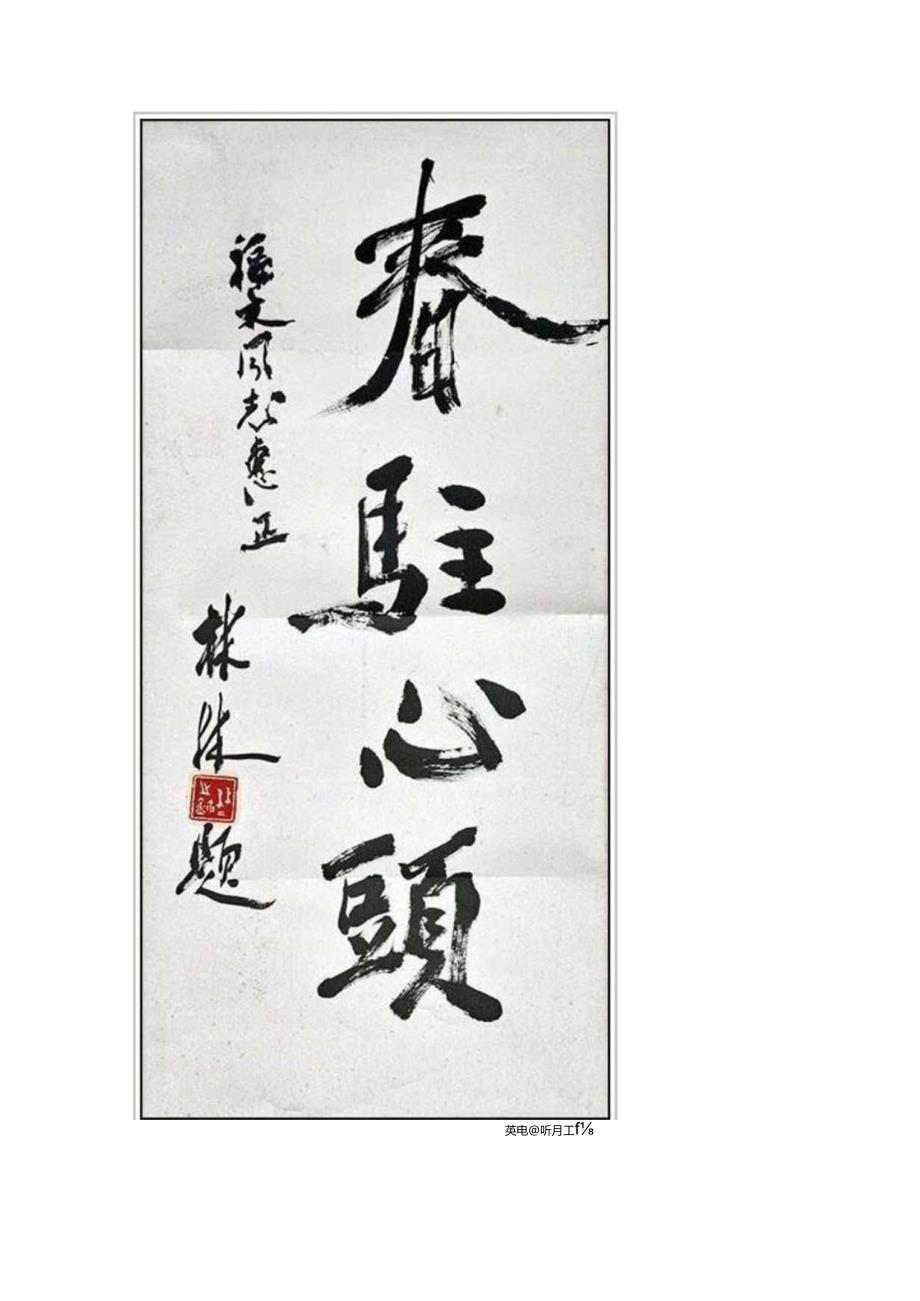 春駐心頭
福文同志惠正
林林题
英电@听月工f⅛